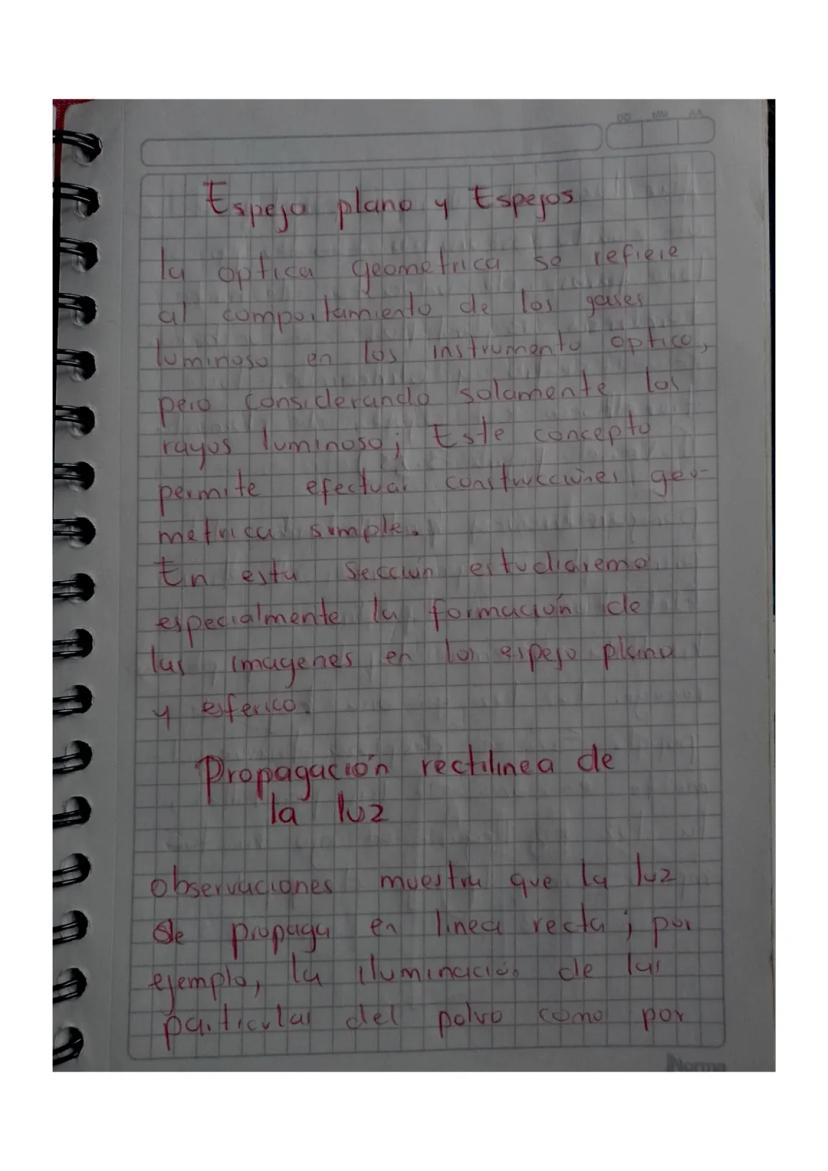 DD MM AA
Espejo plano y Espejos
la optica geometrica se refiere
al comportamiento de los gases
luminoso en los instrumento óptico,
pero considerando solamente los
rayos luminoso; Este concepto
permite efectuar construcciones geo-
metrica simple.
En esta sección estudiaremo
especialmente la formación de
las imagenes en los espejo plano
y esferico.
Propagación rectilinea de
la luz
observaciones muestra que la luz
se propaga en linea recta; por
ejemplo, la iluminación de las
particular del polvo como por
Norma